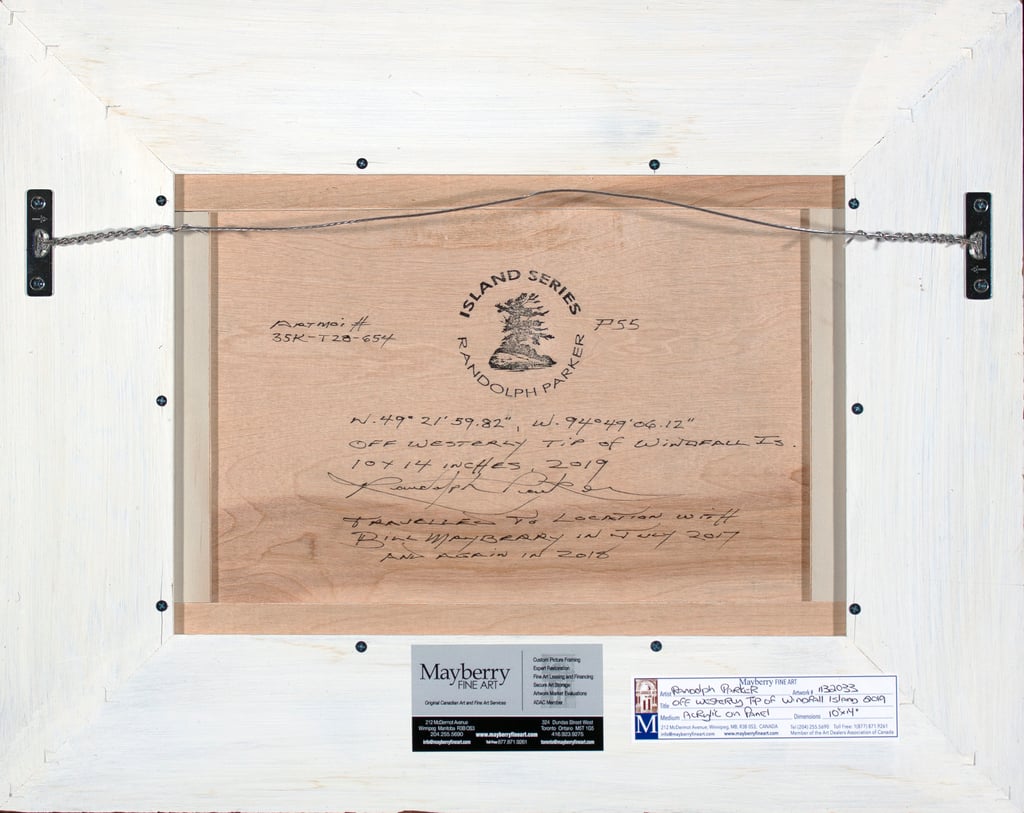 ISLAND SERIES
RANDOLPH PARKER
ARTMOI #
35K-T28-654
P55
N. 49° 21' 59.82", W. 94° 49' 06.12"
OFF WESTERLY TIP OF WINDFALL IS.
10 x 14 INCHES, 2019
Randolph Parker
TRAVELLED TO LOCATION WITH
BILL MAYBERRY IN JULY 2017
AND AGAIN IN 2018
Mayberry
FINE ART
Original Canadian Art and Fine Art Services
Custom Picture Framing
Expert Restoration
Fine Art Leasing and Financing
Secure Art Storage
Artwork Market Evaluations
ADAC Member
212 McDermot Avenue
Winnipeg Manitoba R3B 0S3
204.255.5690
info@mayberryfineart.com
www.mayberryfineart.com
Toll Free 877.871.9261
324 Dundas Street West
Toronto Ontario M5T 1G5
416.923.9275
toronto@mayberryfineart.com
M
Mayberry FINE ART
Artist Randolph Parker Artwork # 1132033
Title Off Westerly Tip of Windfall Island 2019
Medium Acrylic on Panel Dimensions 10"x14"
212 McDermot Avenue, Winnipeg, MB, R3B 0S3, CANADA Tel (204) 255.5690 Toll Free: 1(877) 871.9261
info@mayberryfineart.com www.mayberryfineart.com Member of the Art Dealers Association of Canada